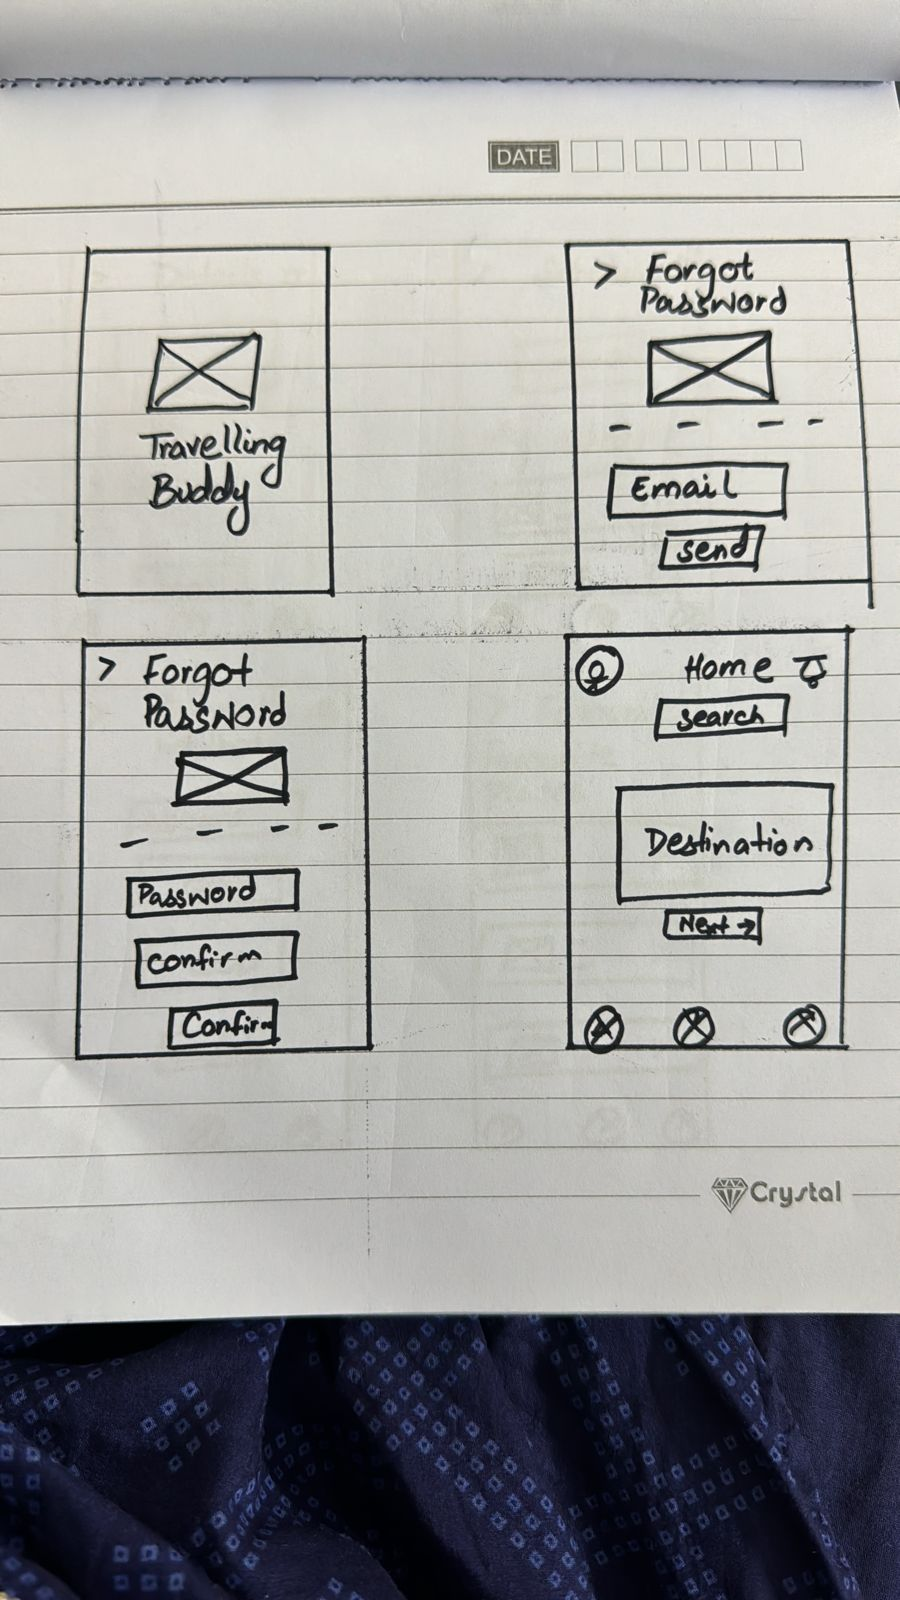 DATE
Travelling
Buddy
> Forgot
Password
Email
send
> Forgot
Password
Password
confirm
Confirm
Home
search
Destination
Next →
Crystal